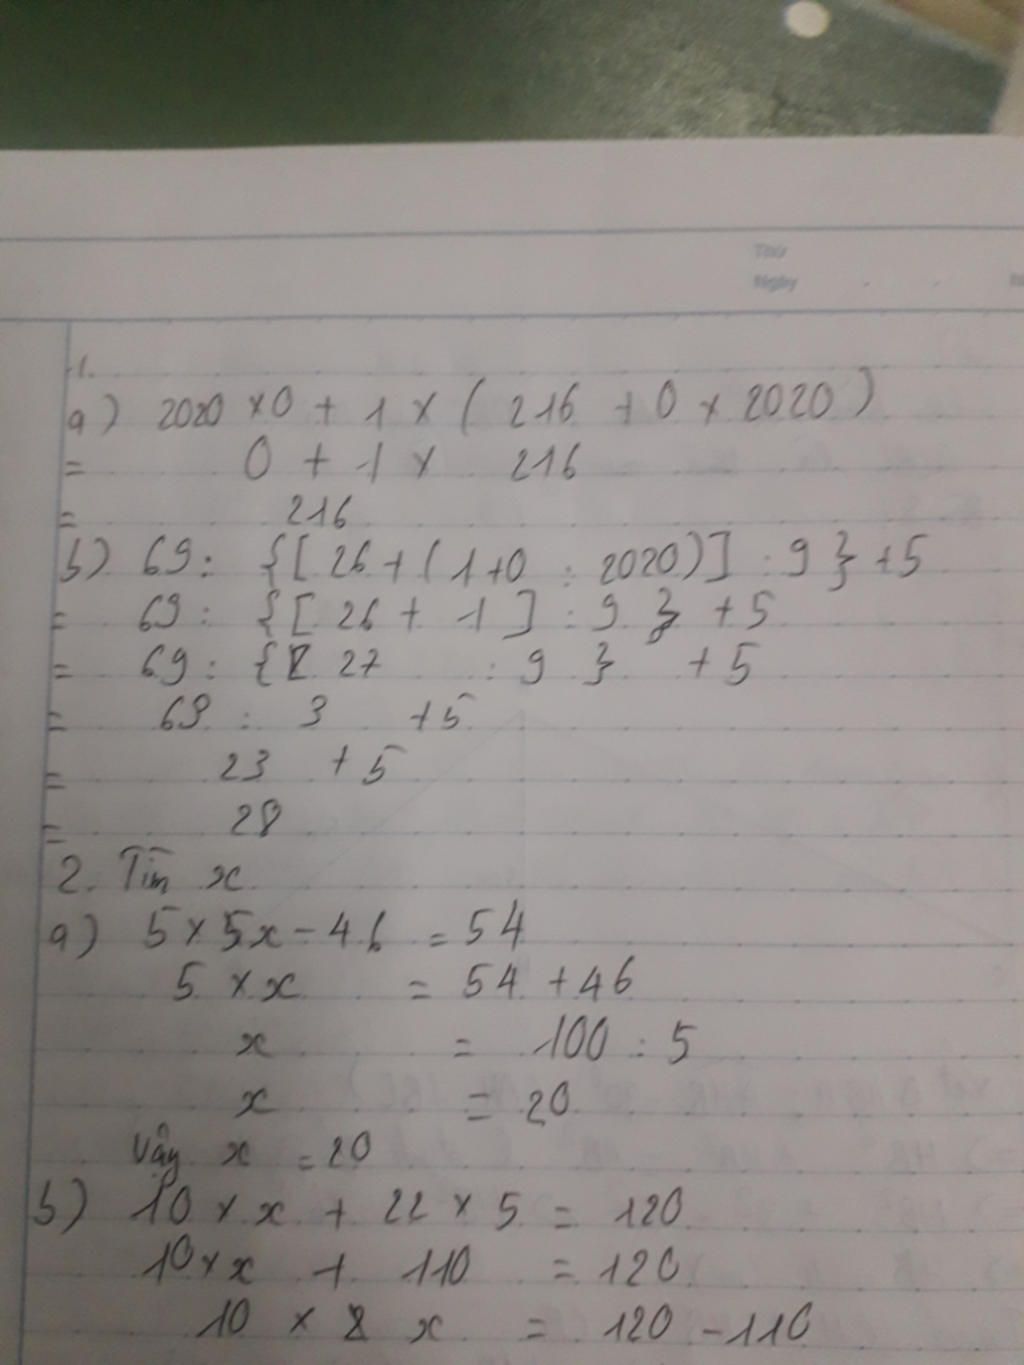 Thứ
Ngày
1.
a) 2020 × 0 + 1 × ( 216 + 0 × 2020 )
= 0 + 1 × 216
= 216
b) 69 : {[ 26 + ( 1 + 0 : 2020 ) ] : 9 } + 5
= 69 : {[ 26 + 1 ] : 9 } + 5
= 69 : { 27 : 9 } + 5
= 69 : 3 + 5
= 23 + 5
= 28
2. Tìm x
a) 5 × 5x - 46 = 54
5 × x = 54 + 46
x = 100 : 5
x = 20
Vậy x = 20
b) 10 × x + 22 × 5 = 120
10 × x + 110 = 120
10 × x = 120 - 110